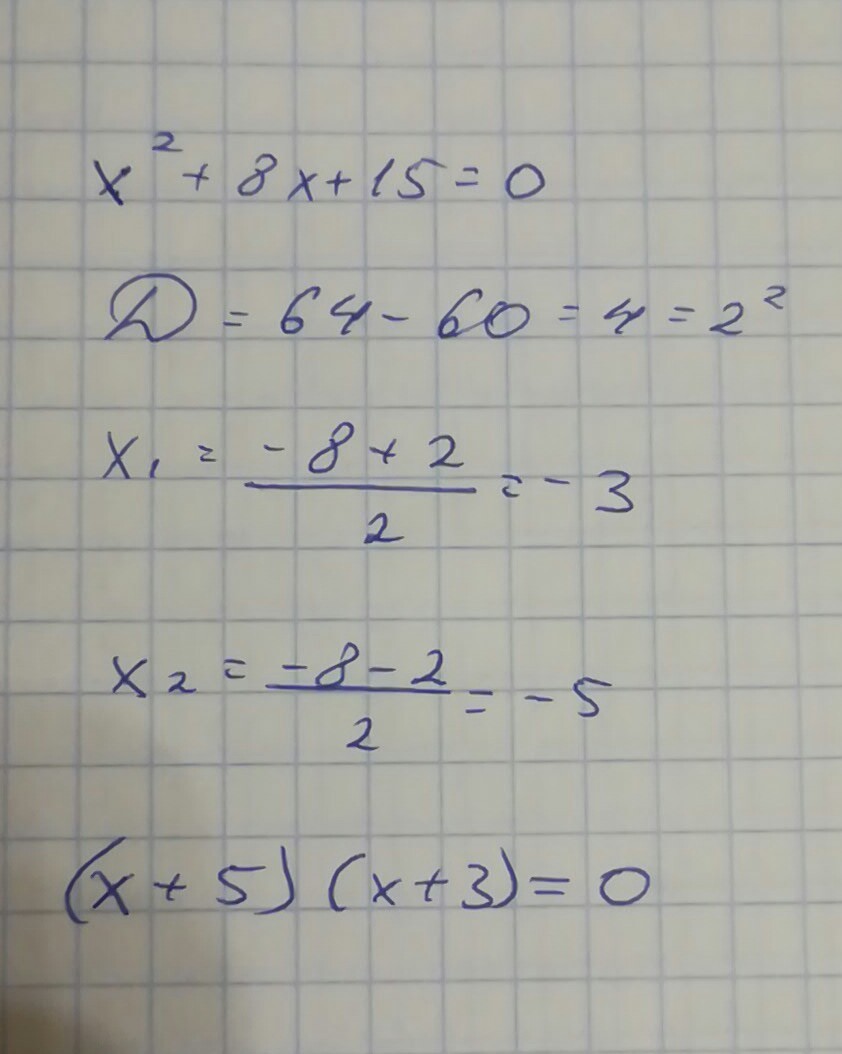 x² + 8x + 15 = 0
D = 64 - 60 = 4 = 2²
x₁ = (-8 + 2) / 2 = -3
x₂ = (-8 - 2) / 2 = -5
(x + 5) (x + 3) = 0